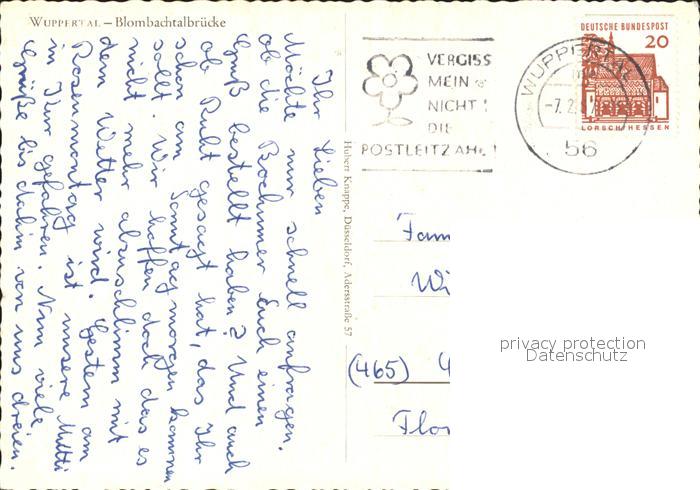 WUPPERTAL – Blombachtalbrücke
Ihr Lieben
Möchte nur schnell anfragen.
ob die Bochumer Euch einen
Gruß bestellt haben? Und auch
ob Ruht gesagt hat, das Ihr
schon am Sonntagmorgen kommen
sollt. Wir hoffen doch das es
nicht mehr abzuschlimm mit
dem Wetter wird. Gestern am
Rosenmontag ist unsere Mutti
in Kur gefahren. Nun viele
Grüße bis dahin von uns dreien.
Hubert Knappe, Düsseldorf, Adersstraße 57
VERGISS
MEIN
NICHT!
DIE
POSTLEITZAHL!
WUPPERTAL
-7.2.
56
DEUTSCHE BUNDESPOST
20
LORSCH/HESSEN
Fam
Wi
(465) 4
Flor
privacy protection
Datenschutz